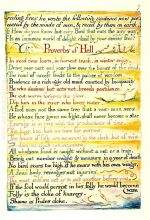 -roding fires he wrote the following sentence now per-
-cieved by the minds of men, & read by them on earth.
How do you know but ev'ry Bird that cuts the airy way,
Is an immense world of delight, clos'd by your senses five?
Proverbs of Hell
In seed time learn, in harvest teach, in winter enjoy.
Drive your cart and your plow over the bones of the dead.
The road of excess leads to the palace of wisdom.
Prudence is a rich ugly old maid courted by Incapacity.
He who desires but acts not, breeds pestilence.
The cut worm forgives the plow.
Dip him in the river who loves water.
A fool sees not the same tree that a wise man sees.
He whose face gives no light, shall never become a star.
All wholsom food is caught without a net or a trap.
Bring out number weight & measure in a year of dearth.
No bird soars too high, if he soars with his own wings.
A dead body revenges not injuries.
If the fool would persist in his folly he would become
wise
Folly is the cloke of knavery.
Shame is Prides cloke.